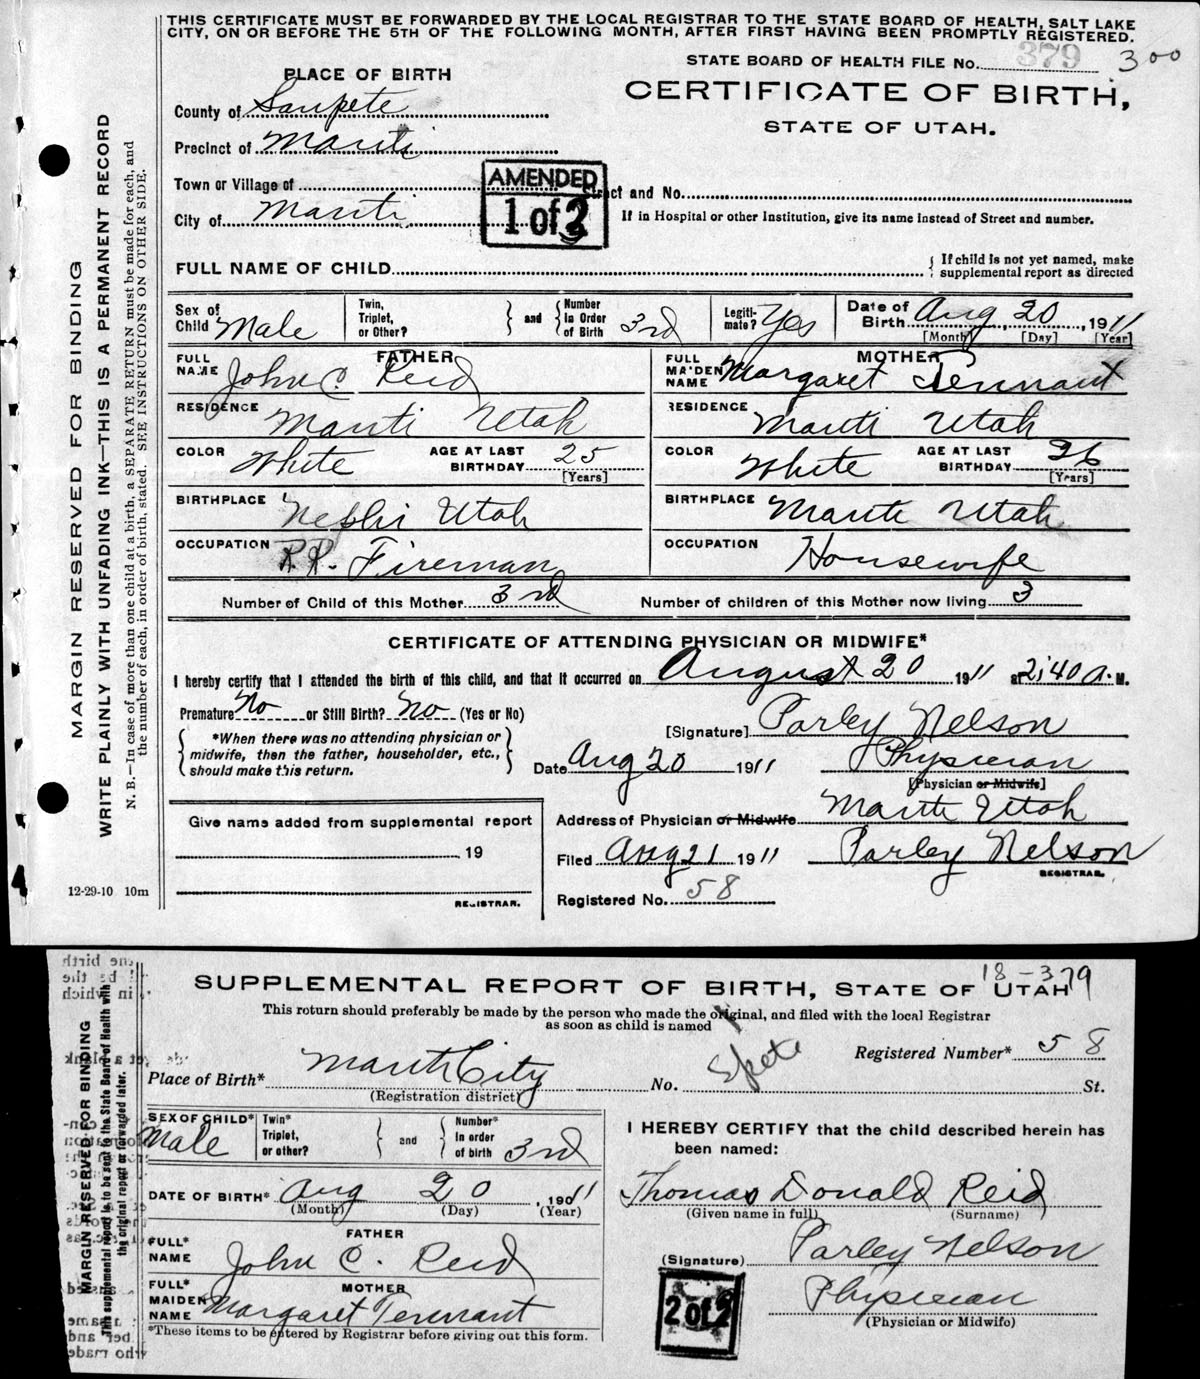 THIS CERTIFICATE MUST BE FORWARDED BY THE LOCAL REGISTRAR TO THE STATE BOARD OF HEALTH, SALT LAKE
CITY, ON OR BEFORE THE 5TH OF THE FOLLOWING MONTH, AFTER FIRST HAVING BEEN PROMPTLY REGISTERED.
STATE BOARD OF HEALTH FILE No. 379 300
PLACE OF BIRTH
CERTIFICATE OF BIRTH,
STATE OF UTAH.
County of Sanpete
Precinct of Manti
Town or Village of
AMENDED
1 of 2
Street and No.
City of Manti
If in Hospital or other Institution, give its name instead of Street and number.
FULL NAME OF CHILD
{ If child is not yet named, make
supplemental report as directed
Sex of Child Male
Twin, Triplet, or Other?
} and {
Number In Order of Birth 3rd
Legiti-mate? Yes
Date of Birth Aug 20, 1911
[Month] [Day] [Year]
FATHER
FULL NAME John C. Reid
MOTHER
FULL MAIDEN NAME Margaret Tennant
RESIDENCE Manti Utah
RESIDENCE Manti Utah
COLOR White AGE AT LAST BIRTHDAY 25 [Years]
COLOR White AGE AT LAST BIRTHDAY 26 [Years]
BIRTHPLACE Nephi Utah
BIRTHPLACE Manti Utah
OCCUPATION R.R. Fireman
OCCUPATION Housewife
Number of Child of this Mother 3rd
Number of children of this Mother now living 3
CERTIFICATE OF ATTENDING PHYSICIAN OR MIDWIFE*
I hereby certify that I attended the birth of this child, and that it occurred on August 20 1911 at 2;40 a. M.
Premature No or Still Birth? No (Yes or No)
[Signature] Parley Nelson
{ *When there was no attending physician or
midwife, then the father, householder, etc.,
should make this return. }
Date Aug 20 1911
Physician
[Physician or Midwife]
Address of Physician or Midwife Manti Utah
Give name added from supplemental report
19
REGISTRAR.
Filed Aug 21 1911 Parley Nelson
REGISTRAR.
Registered No. 58
12-29-10 10m
MARGIN RESERVED FOR BINDING
WRITE PLAINLY WITH UNFADING INK—THIS IS A PERMANENT RECORD
N. B.—In case of more than one child at a birth, a SEPARATE RETURN must be made for each, and
the number of each, in order of birth, stated. SEE INSTRUCTIONS ON OTHER SIDE.
18-379
SUPPLEMENTAL REPORT OF BIRTH, STATE OF UTAH
This return should preferably be made by the person who made the original, and filed with the local Registrar
as soon as child is named
Registered Number* 58
Place of Birth* Manti City No. Spete St.
(Registration district)
SEX OF CHILD* Male
Twin* Triplet, or other?
} and {
Number* In order of birth 3rd
I HEREBY CERTIFY that the child described herein has
been named:
DATE OF BIRTH* Aug 20, 1911
(Month) (Day) (Year)
Thomas Donald Reid
(Given name in full) (Surname)
FATHER
FULL* NAME John C. Reid
(Signature) Parley Nelson
MOTHER
FULL* MAIDEN NAME Margaret Tennant
2 of 2
Physician
(Physician or Midwife)
*These items to be entered by Registrar before giving out this form.
MARGIN RESERVED FOR BINDING
This supplemental report is to be sent to the State Board of Health with
the original report or forwarded later.